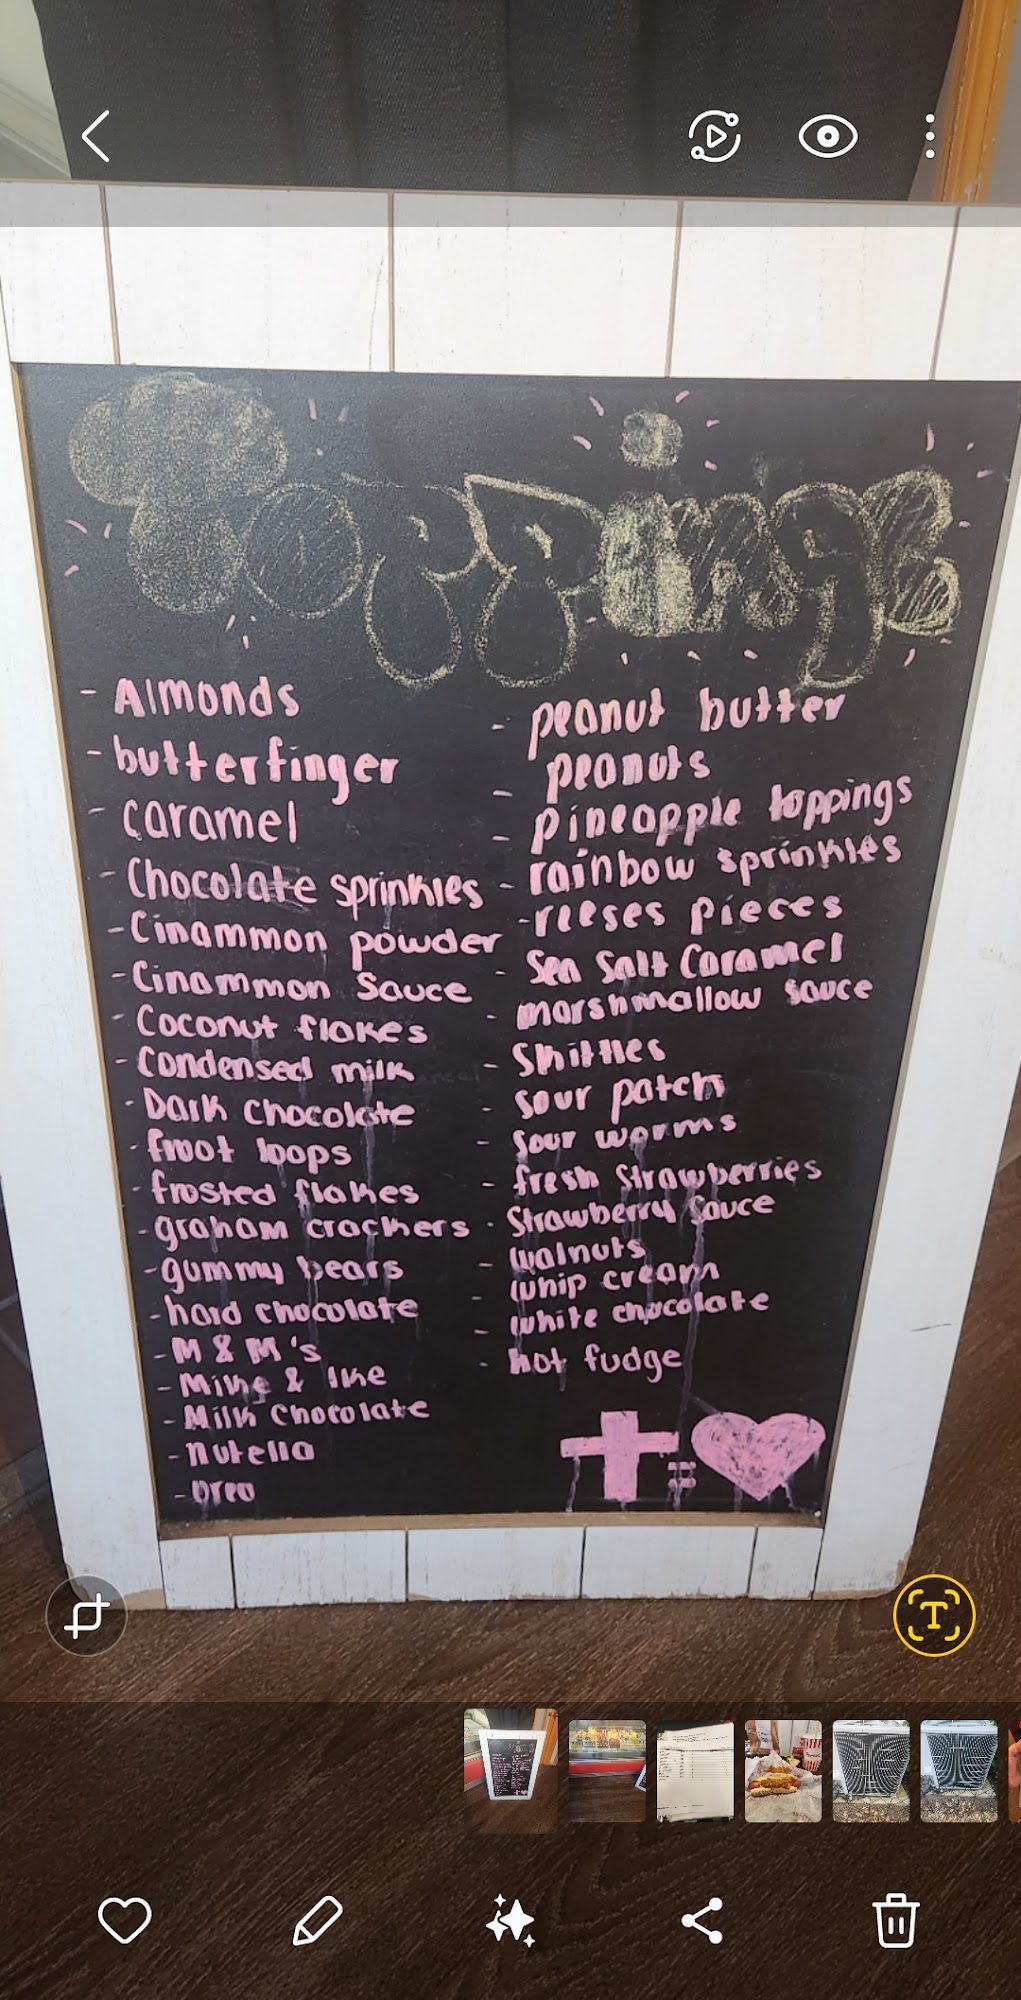 toppings
- Almonds
- butterfinger
- caramel
- Chocolate sprinkles
- Cinammon powder
- Cinammon Sauce
- Coconut flakes
- Condensed milk
- Dark chocolate
- froot loops
- frosted flakes
- graham crackers
- gummy bears
- hard chocolate
- M & M's
- Mike & Ike
- Milk Chocolate
- nutella
- oreo
- peanut butter
- peanuts
- pineapple toppings
- rainbow sprinkles
- reeses pieces
- Sea Salt Caramel
- marshmallow sauce
- Skittles
- Sour patch
- Sour worms
- fresh Strawberries
- Strawberry Sauce
- Walnuts
- Whip cream
- White chocolate
- hot fudge
=
T